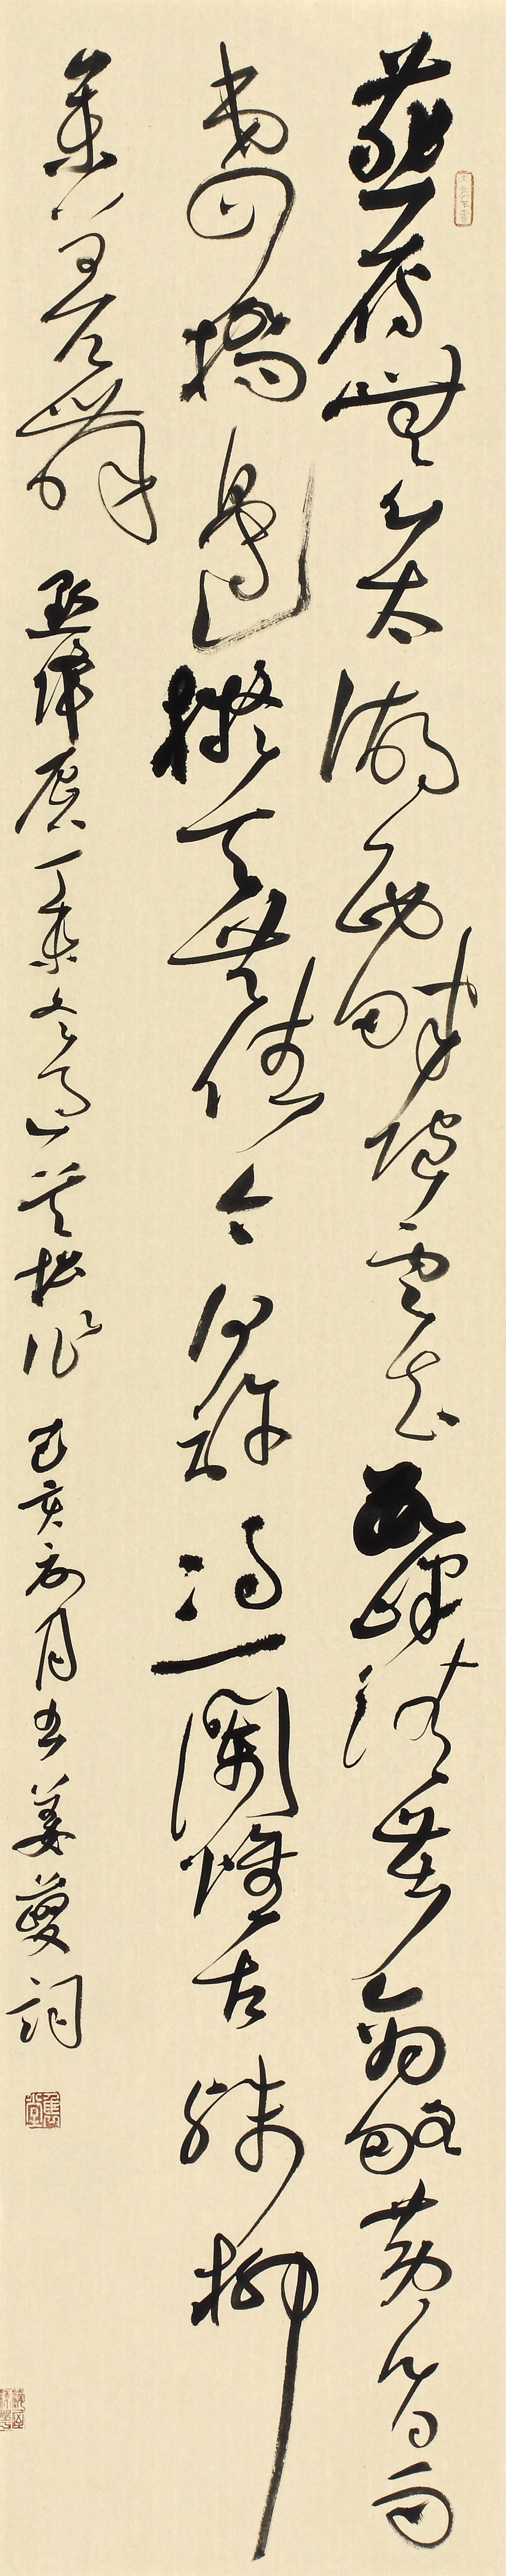 燕雁無心太湖西畔隨雲去數峰清苦商略黃昏雨
第四橋邊擬共天隨住今何許憑闌懷古殘柳
參差舞 點絳唇丁未冬過吳松作 己亥 月書姜夔詞